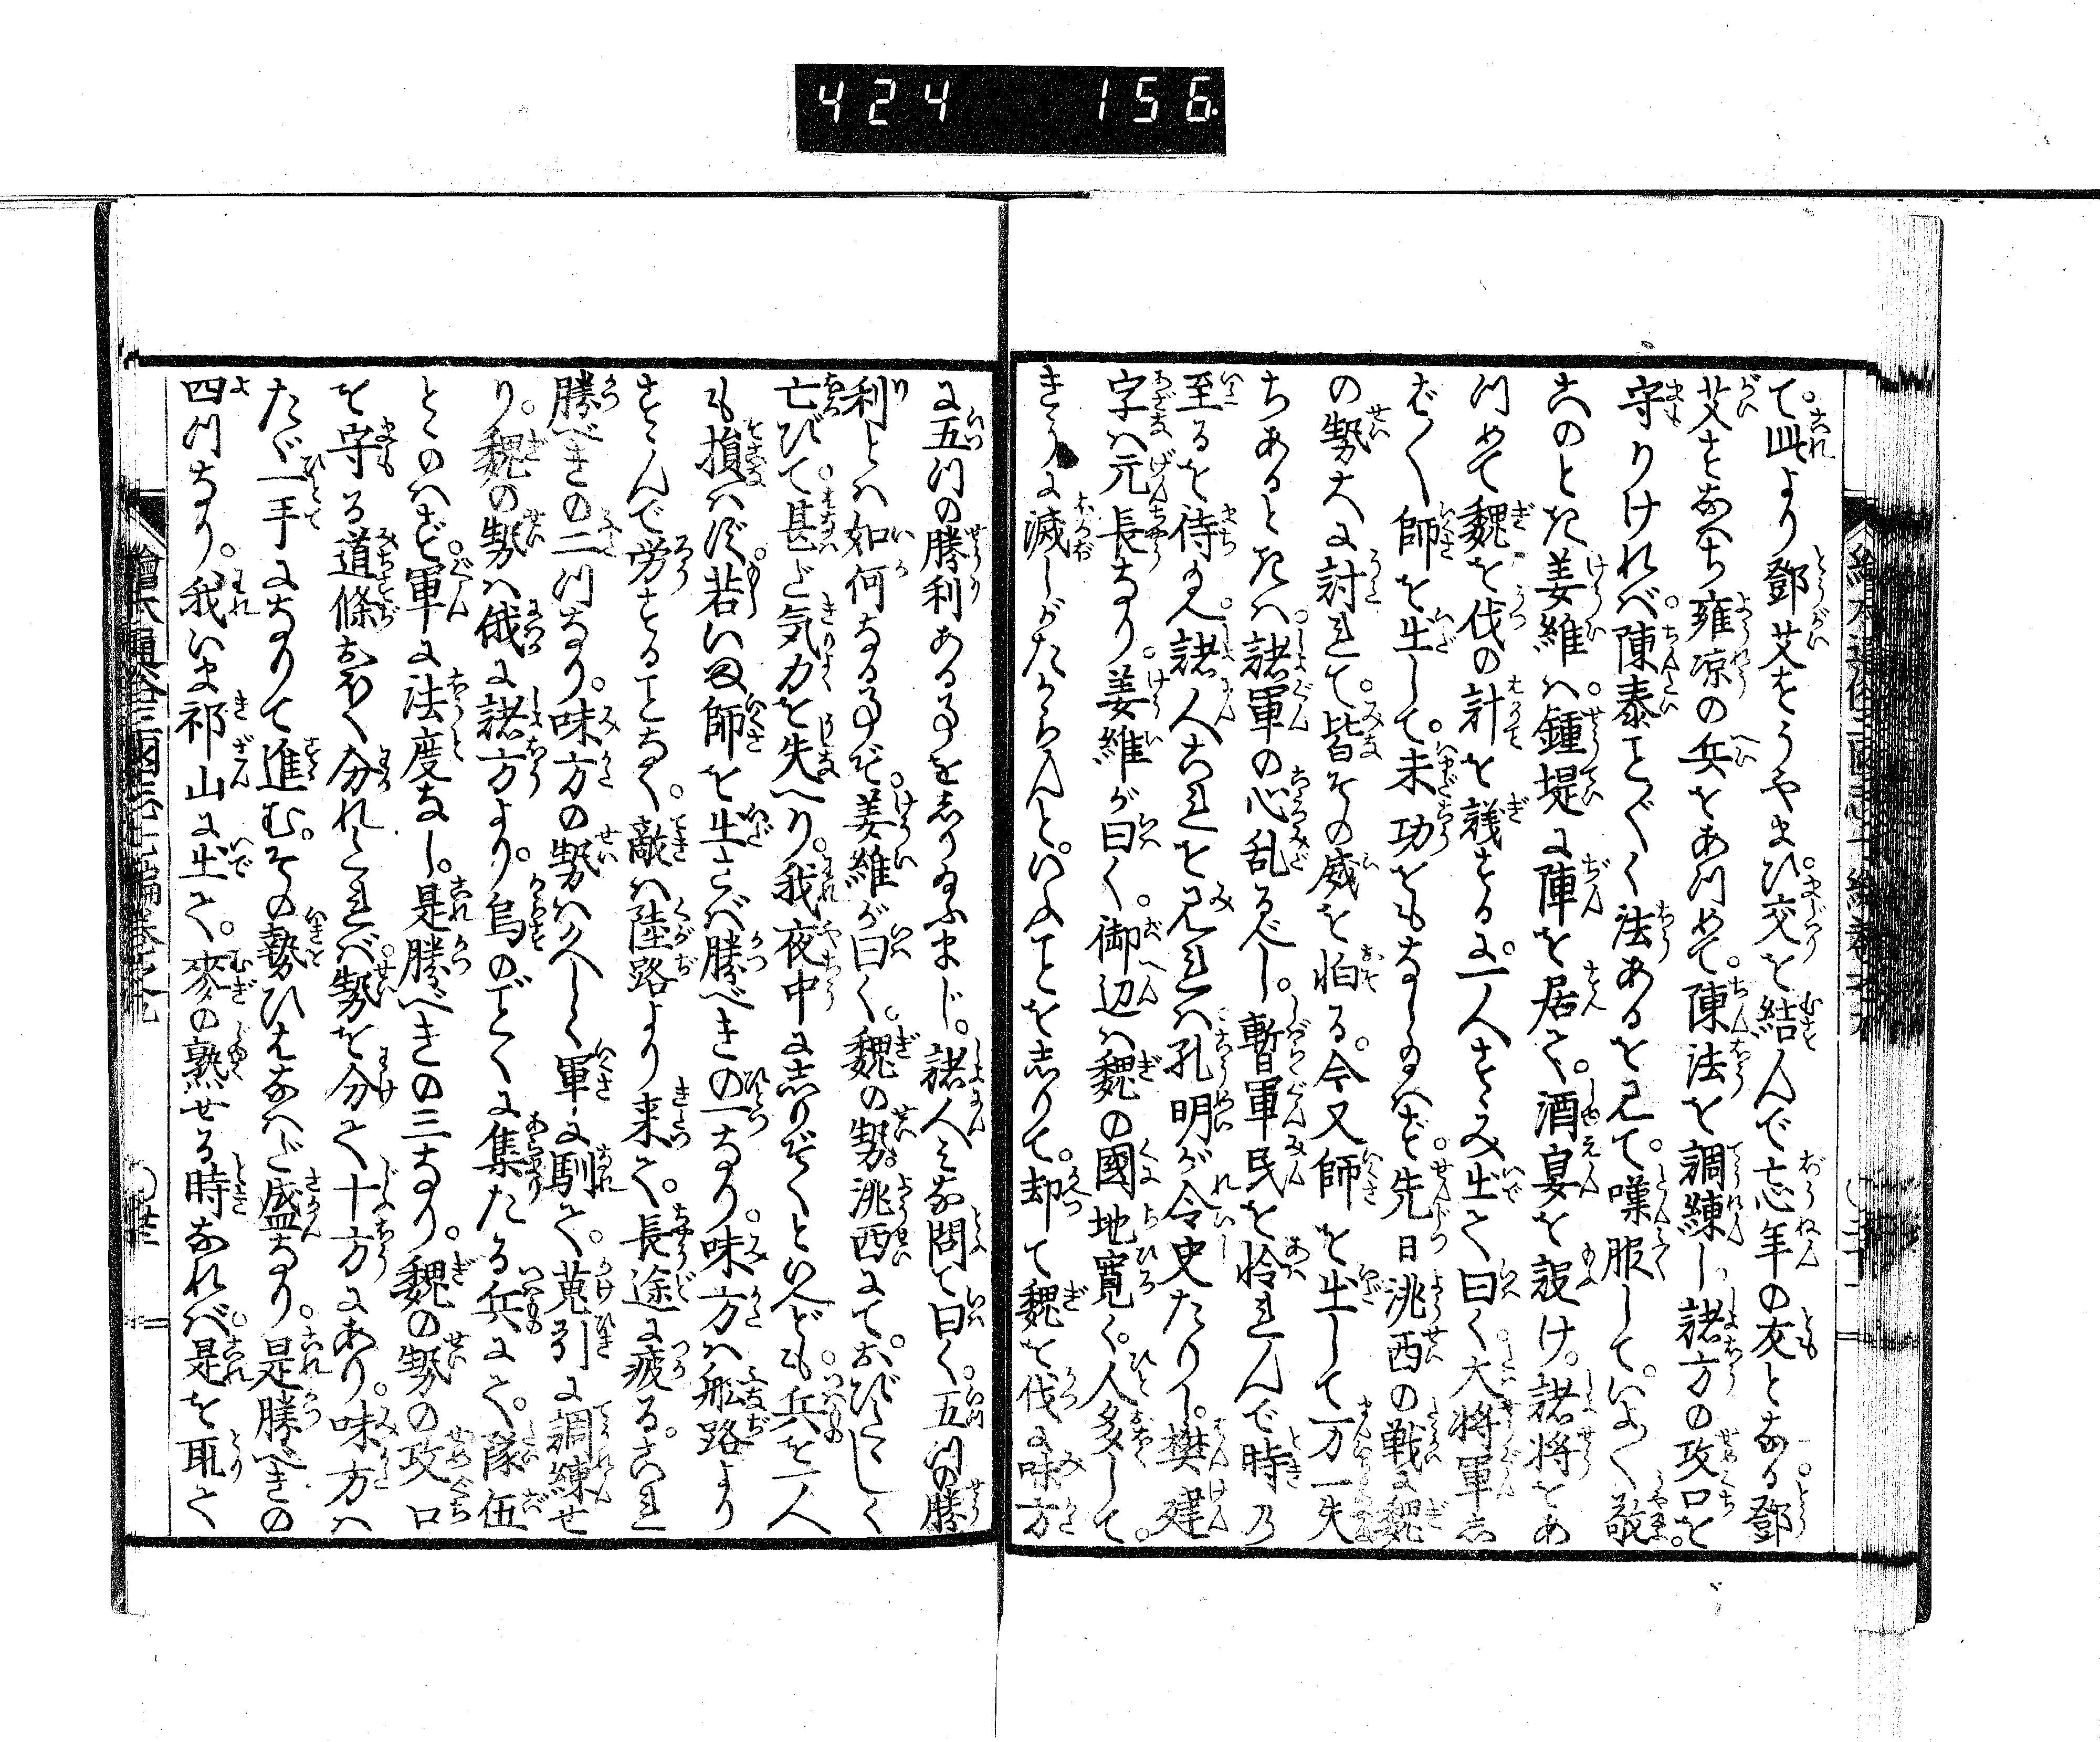 424 156
て。此より鄧艾をうやまひ。交を結んで忘年の友となる。鄧
艾すなはち雍凉の兵をあつめて。陳法を調練し諸方の攻口を
守りければ。陳泰ことごとく法あるを見て。嘆服して。いよ〱敬。
このとき姜維ハ鍾堤に陣を居て。酒宴を設け。諸将をあ
つめて魏を伐の計を議するに。一人すゝみ出て曰く大将軍し
ば〱師を出して。未功をもなしゐハず。先日洮西の戦に魏
の勢大に討れて。皆その威を怕る。今又師を出して万一失
ちあるときハ。諸軍の心乱るべし。暫軍民を怜れんで時乃
至るを待ゐへ。諸人これを見れハ。孔明が令史たりし。樊建
字ハ元長なり。姜維が曰く。御辺ハ魏の國地寛く。人多して。
きうに滅しがたからんと。いふことを志りて。却て魏を伐に味方
に五つの勝利ある事を志りゐふまじ。諸人みな問て曰く。五つの勝
利とハ如何なる事ぞ。姜維が曰く。魏の勢。洮西にて。おびたゞしく
亡びて。甚ど気力を失へり。我夜中に志りぞくと以へども。兵を一人
も損ハず。若いま師を出さば勝べきの一なり。味方ハ船路より
すゝんで労することなく。敵ハ陸路より来て。長途に疲る。これ
勝べきの二つなり。味方の勢ハ久しく軍に馴て。蒐引に調練せ
り。魏の勢ハ俄に諸方より。烏のごとくに集たる兵にて。隊伍
とゝのハず。軍に法度なし。是勝べきの三なり。魏の勢の攻口
を守る道條おほく分れたれば。勢を分て十方にあり。味方ハ
たゞ一手になりて進む。その勢ひはなハど盛なり。是勝べきの
四つなり。我いま祁山に出て。麥の熟せる時なれバ。是を取て